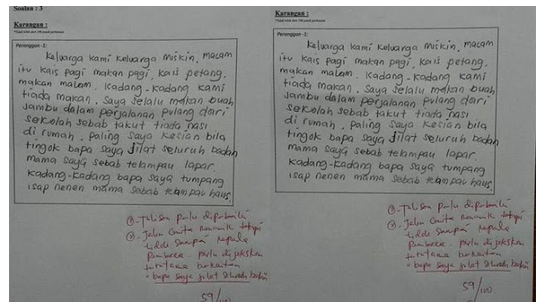 Soalan : 3
Karangan :
Perenggan -1:
Keluarga kami keluarga miskin, macam
itu kais pagi makan pagi, kais petang,
makan malam. Kadang-kadang kami
tiada makan. Saya selalu makan buah
jambu dalam perjalanan pulang dari
sekolah sebab takut tiada nasi
di rumah. Paling saya kesian bila
tingok bapa saya jilat seluruh badan
mama saya sebab telampau lapar.
kadang-kadang bapa saya tumpang
isap nenen mama sebab telampau haus.
- Tulisan perlu diperbaiki
- Jalan cerita menarik tetapi
tidak sampai kepada
pembaca - perlu dijelaskan
terutama berkaitan
" bapa saya jilat seluruh badan
59/100
Karangan :
Perenggan -1:
Keluarga kami keluarga miskin, macam
itu kais pagi makan pagi, kais petang,
makan malam. Kadang-kadang kami
tiada makan. Saya selalu makan buah
jambu dalam perjalanan pulang dari
sekolah sebab takut tiada nasi
di rumah. Paling saya kesian bila
tingok bapa saya jilat seluruh badan
mama saya sebab telampau lapar.
kadang-kadang bapa saya tumpang
isap nenen mama sebab telampau haus.
- Tulisan perlu diperbaiki
- Jalan cerita menarik tetapi
tidak sampai kepada
pembaca - perlu dijelaskan
terutama berkaitan
" bapa saya jilat seluruh badan
59/100